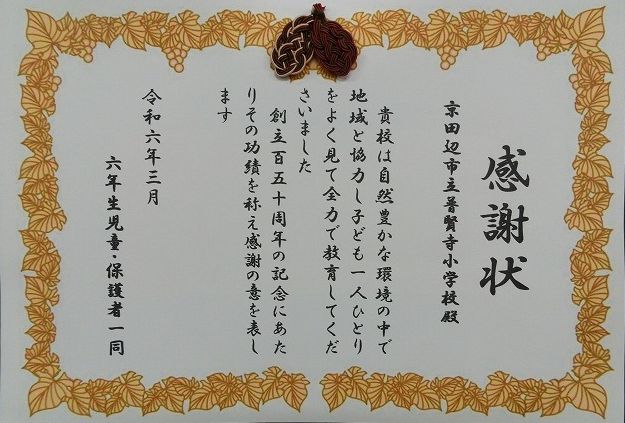 感謝状
京田辺市立普賢寺小学校殿
貴校は自然豊かな環境の中で
地域と協力し子ども一人ひとり
をよく見て全力で教育してくだ
さいました
創立百五十周年の記念にあた
りその功績を称え感謝の意を表し
ます
令和六年三月
六年生児童・保護者一同